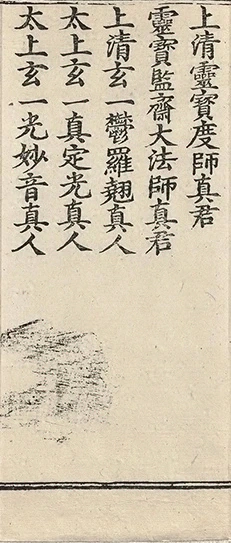 上清靈寶度師真君
靈寶監齋大法師真君
上清玄一欝羅翹真人
太上玄一真定光真人
太上玄一光妙音真人